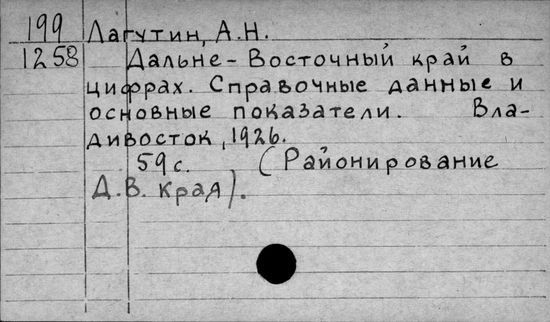 199 Лагутин, А.Н.
1258 Дальне-Восточный край в
цифрах. Справочные данные и
основные показатели. Вла-
дивосток, 1926.
59 с. (Районирование
Д.В. Края).